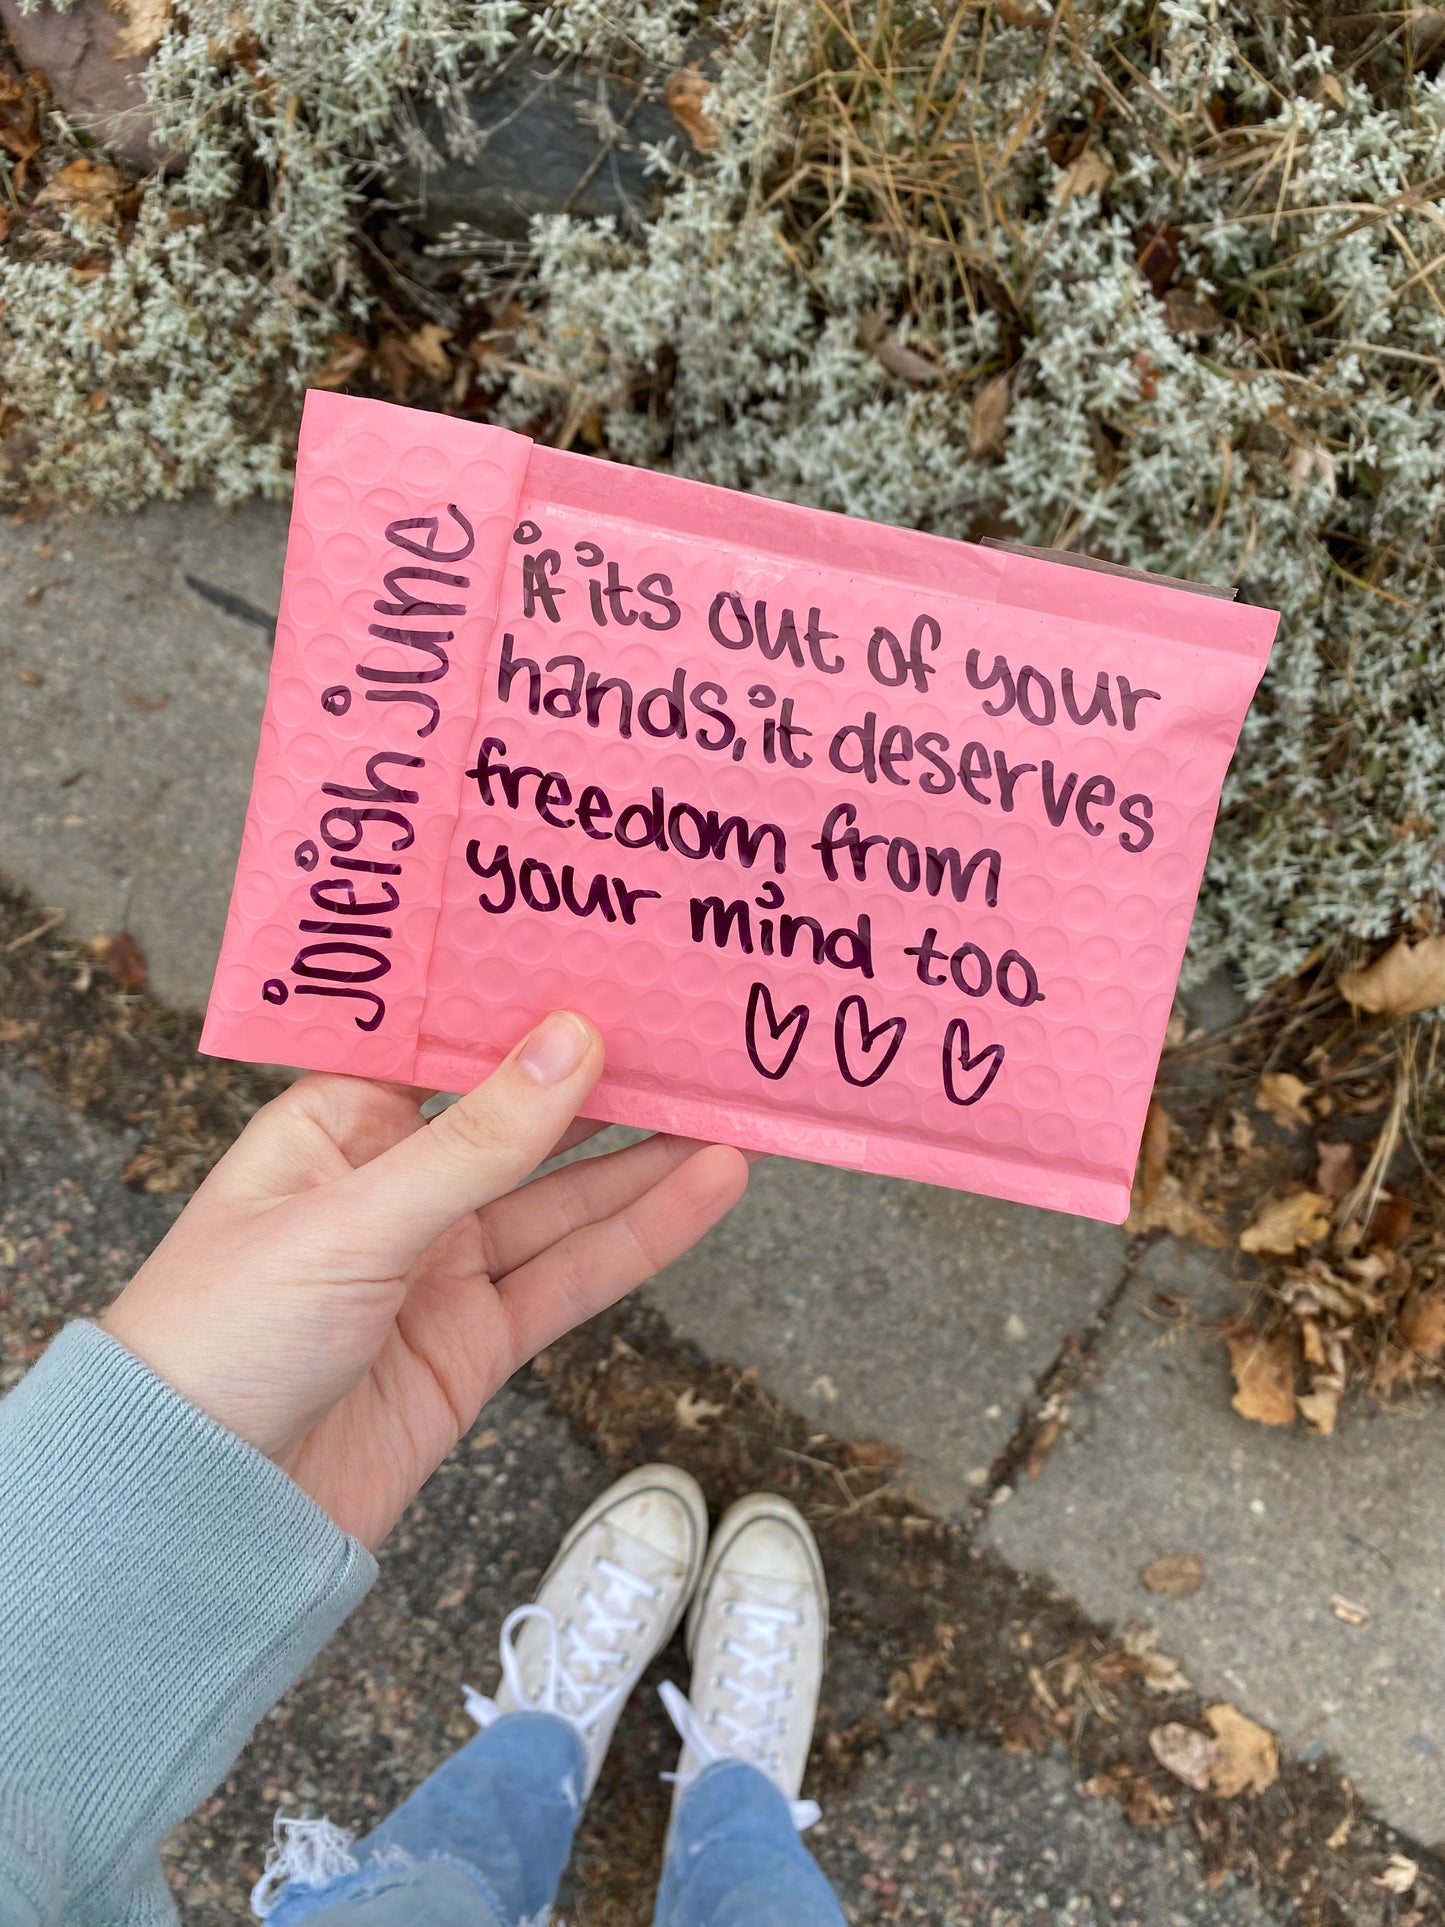 joleigh june
if its out of your
hands, it deserves
freedom from
your mind too.